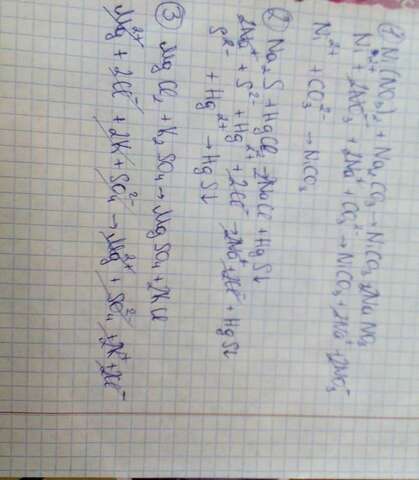 ① Ni(NO₃)₂ + Na₂CO₃ → NiCO₃ 2NaNO₃
Ni²⁺ + 2NO₃⁻ + 2Na⁺ + CO₃²⁻ → NiCO₃ + 2Na⁺ + 2NO₃⁻
Ni²⁺ + CO₃²⁻ → NiCO₃
② Na₂S + HgCl₂ → 2NaCl + HgS↓
2Na⁺ + S²⁻ + Hg²⁺ + 2Cl⁻ → 2Na⁺ + 2Cl⁻ + HgS↓
S²⁻ + Hg²⁺ → HgS↓
③ MgCl₂ + K₂SO₄ → MgSO₄ + 2KCl
Mg²⁺ + 2Cl⁻ + 2K + SO₄²⁻ → Mg²⁺ + SO₄²⁻ + 2K⁺ + 2Cl⁻